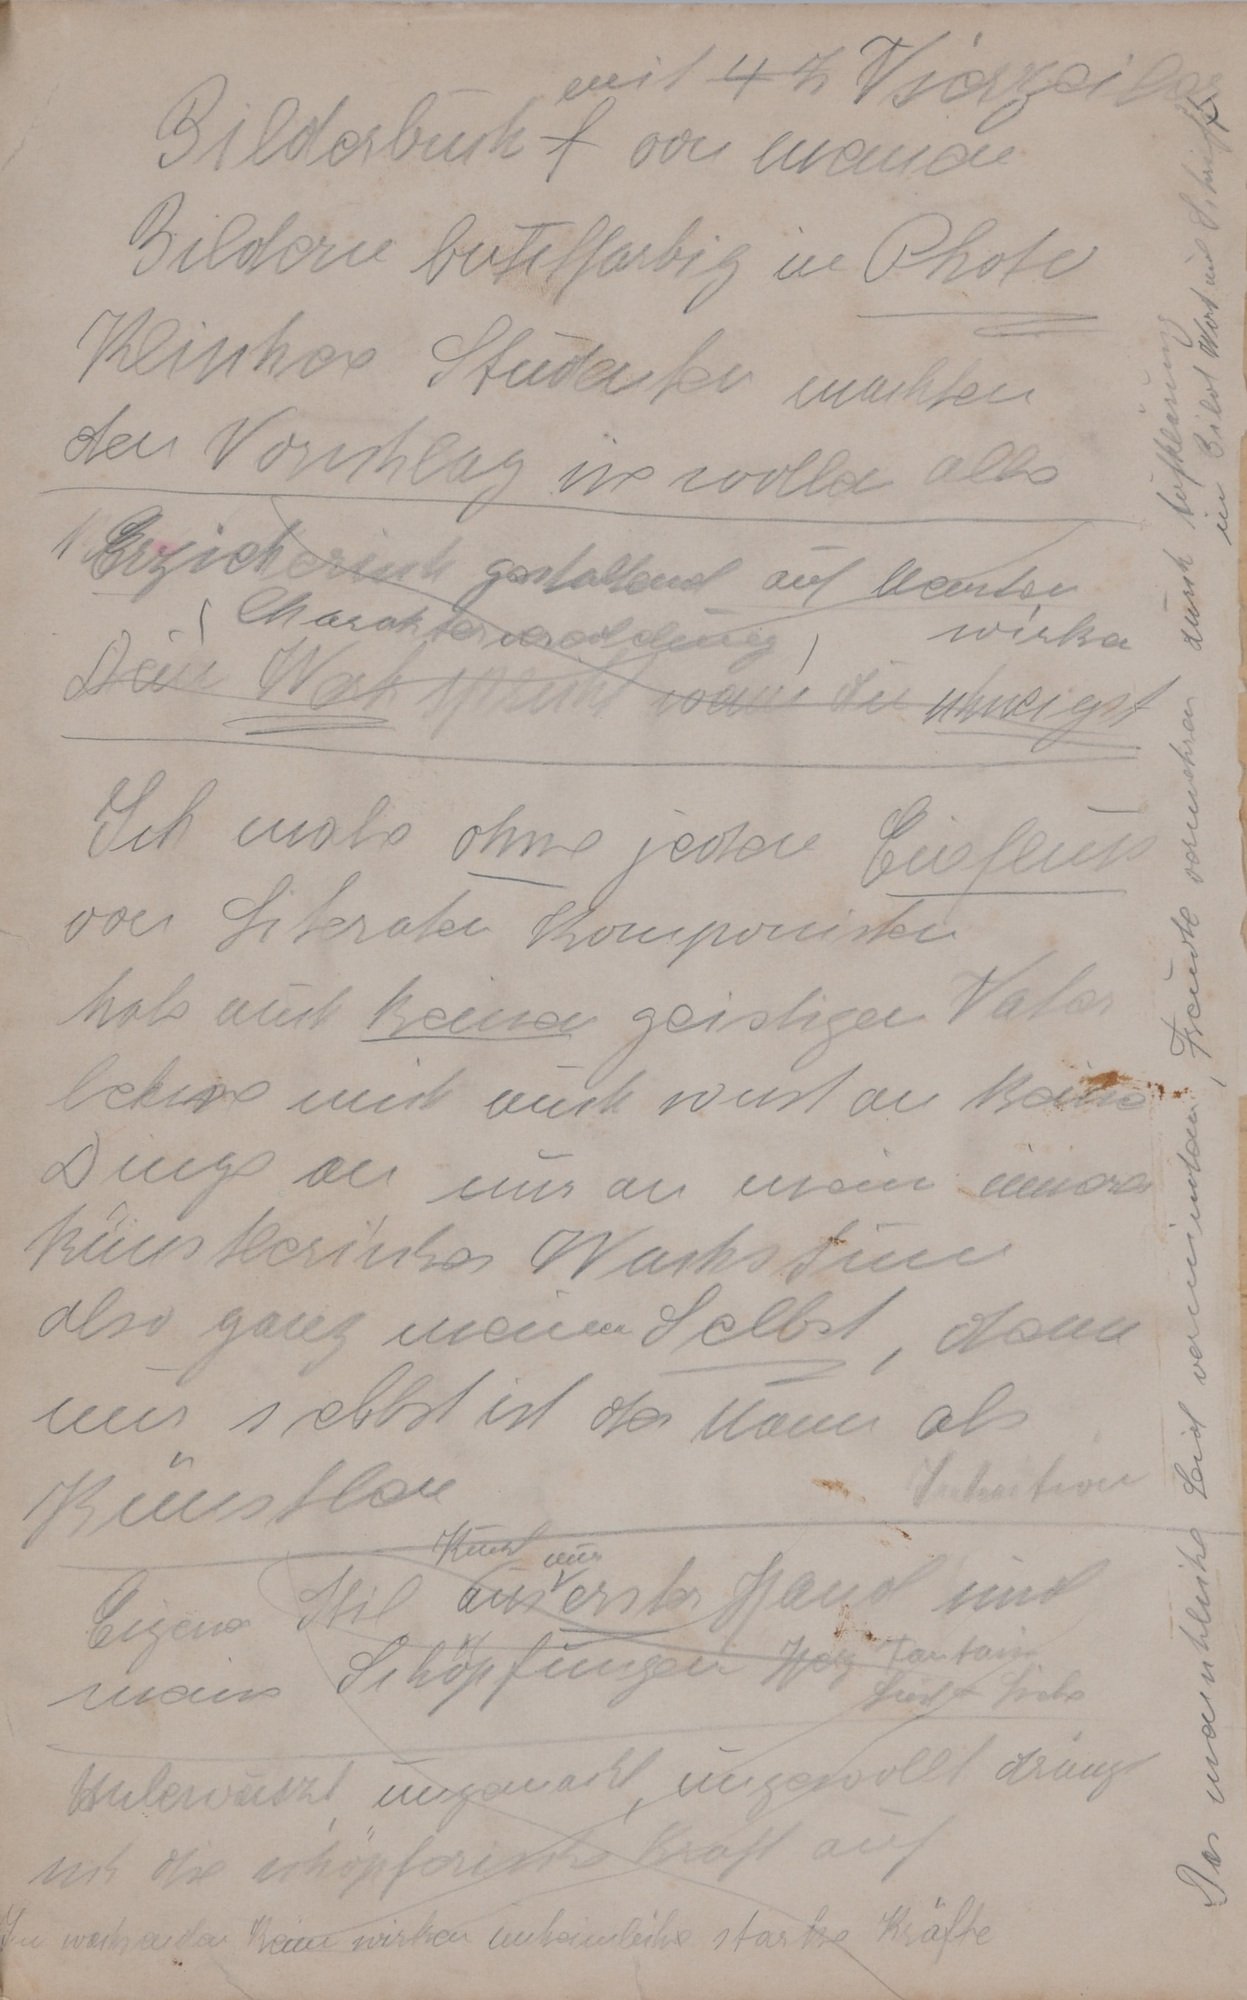 mit 4 z Vierzeiler
Bilderbuch von meinen
Bildern buntfarbig in Photo
Klischee Studenten machten
den Vorschlag sie wollen alle
1) Erzieherisch gestaltend auf Menschen
( Charakterveredelung ) wirken
Dein Werk spricht wenn du schweigst
Ich male ohne jeden Einfluss
von Literaten Komponisten
habe auch keinen geistigen Vater
lehne mich auch sonst an keine
Dinge an nur an mein inneres
künstlerisches Wachstum
also ganz meinem Selbst, denn
nur selbst ist der Mann als
Künstler
Intuition
Kunst nur
Eigener Stil aus erster Hand und
meine Schöpfungen Herz Fantasie
Leid + Liebe
ungemacht, ungewollt drängt
sich die schöpferische Kraft auf
Im wachsenden Keim wirken unheimliche starke Kräfte
Das menschliche Leid vermindern, Freude vermehren durch Aufklärung
in Bild Wort und Schrift